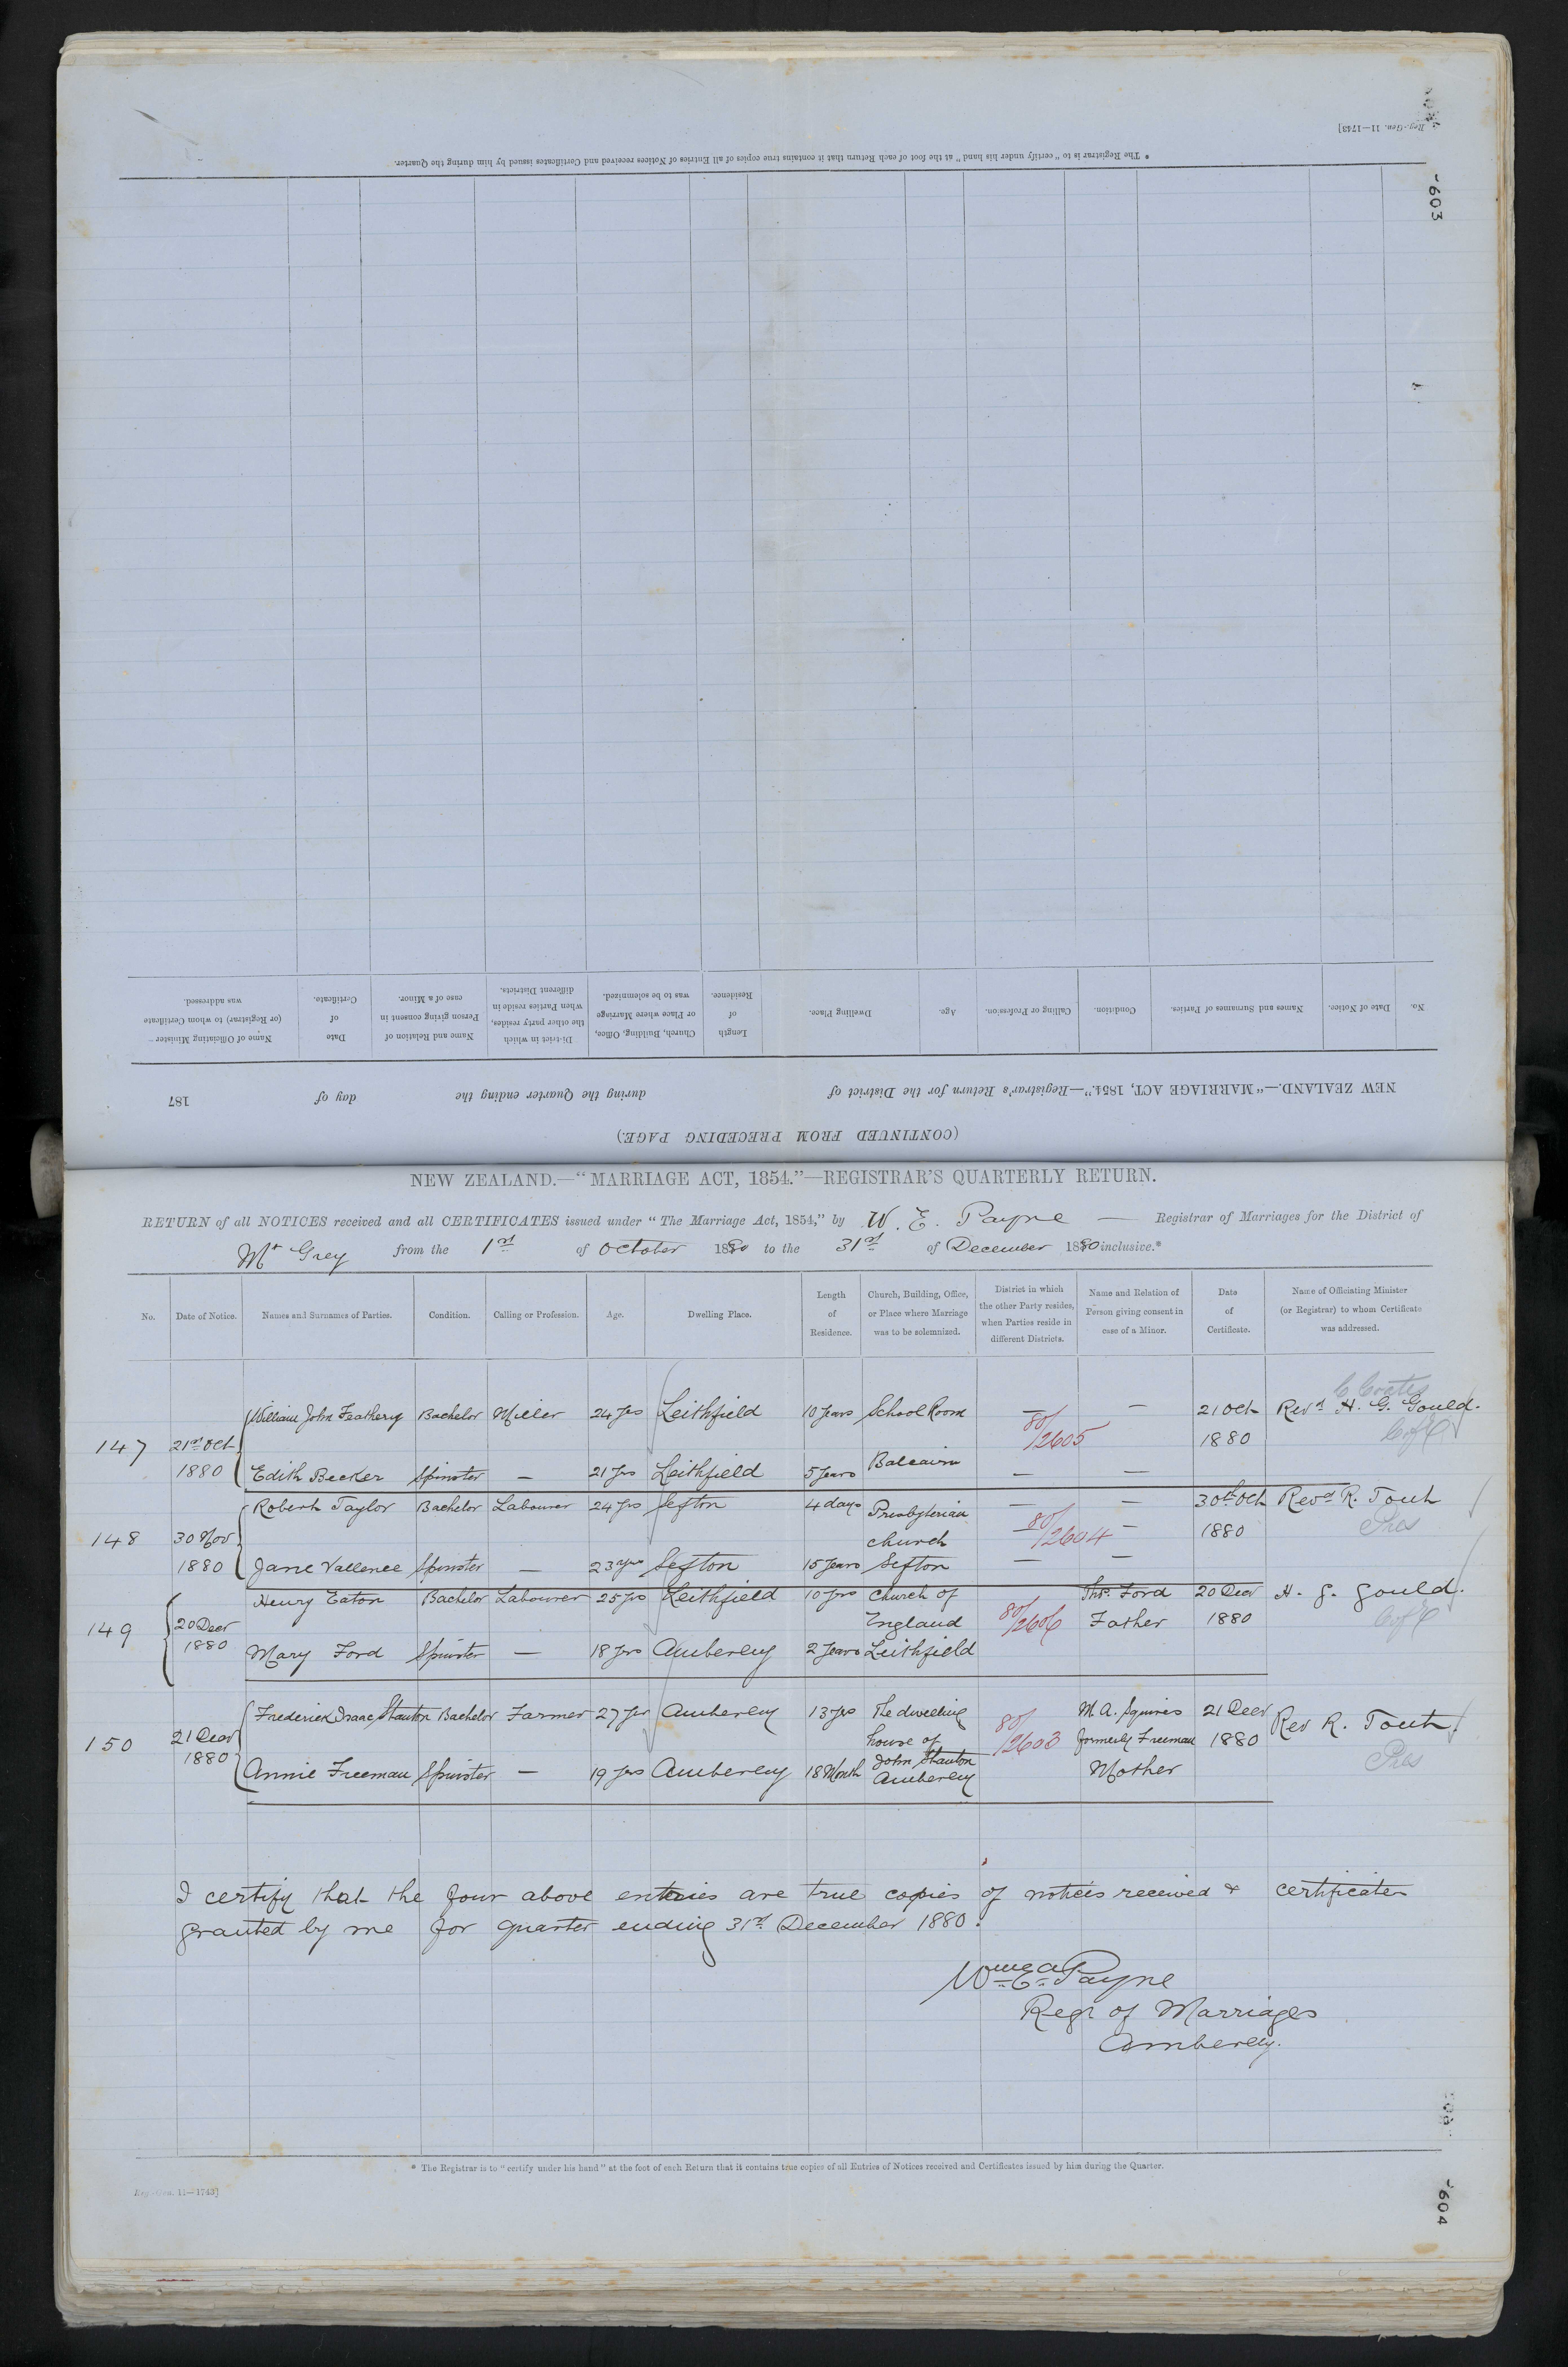 Reg.-Gen. 11—1743]
* The Registrar is to "certify under his hand" at the foot of each Return that it contains true copies of all Entries of Notices received and Certificates issued by him during the Quarter.
603
No.
Date of Notice.
Names and Surnames of Parties.
Condition.
Calling or Profession.
Age.
Dwelling Place.
Length of Residence.
Church, Building, Office, or Place where Marriage was to be solemnized.
District in which the other party resides, when Parties reside in different Districts.
Name and Relation of Person giving consent in case of a Minor.
Date of Certificate.
Name of Officiating Minister (or Registrar) to whom Certificate was addressed.
NEW ZEALAND.—"MARRIAGE ACT, 1854."—Registrar's Return for the District of during the Quarter ending the day of 187
(CONTINUED FROM PRECEDING PAGE.)
NEW ZEALAND.—"MARRIAGE ACT, 1854."—REGISTRAR'S QUARTERLY RETURN.
RETURN of all NOTICES received and all CERTIFICATES issued under "The Marriage Act, 1854," by W. E. Payne — Registrar of Marriages for the District of
Mt Grey from the 1st of October 1880 to the 31st of December 1880 inclusive.*
No.
Date of Notice.
Names and Surnames of Parties.
Condition.
Calling or Profession.
Age.
Dwelling Place.
Length of Residence.
Church, Building, Office, or Place where Marriage was to be solemnized.
District in which the other Party resides, when Parties reside in different Districts.
Name and Relation of Person giving consent in case of a Minor.
Date of Certificate.
Name of Officiating Minister (or Registrar) to whom Certificate was addressed.
147 21st Oct 1880
William John Bachelor Miller 24 yrs Leithfield 10 years School Room — — 21 Oct 1880 Revd H. G. Gould.
80/2605
C of E
Edith Becker Spinster — 21 yrs Leithfield 5 years Balcairn — —
148 30 Nov 1880
Robert Taylor Bachelor Labourer 24 yrs Sefton 4 days Presbyterian church — — 30th Oct 1880 Revd R. Tout
80/2604
Pres
Jane Vallence Spinster — 23 yrs Sefton 15 years Sefton — —
149 20 Decr 1880
Henry Eaton Bachelor Labourer 25 yrs Leithfield 10 yrs Church of England Thos. Ford Father 20 Decr 1880 H. G. Gould.
80/2606
C of E
Mary Ford Spinster — 18 yrs Amberley 2 years Leithfield
150 21 Decr 1880
Frederick Isaac Stanton Bachelor Farmer 27 yrs Amberley 13 yrs The dwelling house of M. A. Squires formerly Freeman 21 Decr 1880 Rev R. Tout.
80/2603
Pres
Annie Freeman Spinster — 19 yrs Amberley 18 Month John Stanton Amberley Mother
I certify that the four above entries are true copies of notices received & certificates
granted by me for quarter ending 31st December 1880.
Payne
Regr of Marriages
Amberley.
* The Registrar is to "certify under his hand" at the foot of each Return that it contains true copies of all Entries of Notices received and Certificates issued by him during the Quarter.
Reg.-Gen. 11—1743]
604